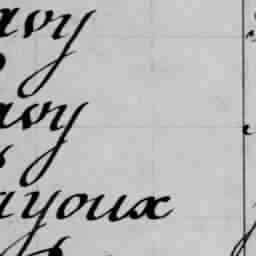 avy
avy
ayoux